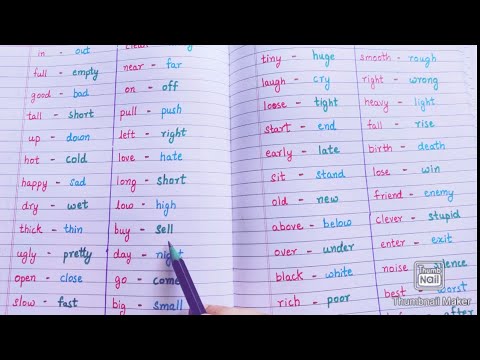 in - out
full - empty
good - bad
tall - short
up - down
hot - cold
happy - sad
dry - wet
thick - thin
ugly - pretty
open - close
slow - fast
near - far
on - off
pull - push
left - right
love - hate
long - short
low - high
buy - sell
day - night
go - come
big - small
tiny - huge
laugh - cry
loose - tight
start - end
early - late
sit - stand
old - new
above - below
over - under
black - white
rich - poor
smooth - rough
right - wrong
heavy - light
fall - rise
birth - death
lose - win
friend - enemy
clever - stupid
enter - exit
noise - silence
after
Thumb
Nail
Thumbnail Maker